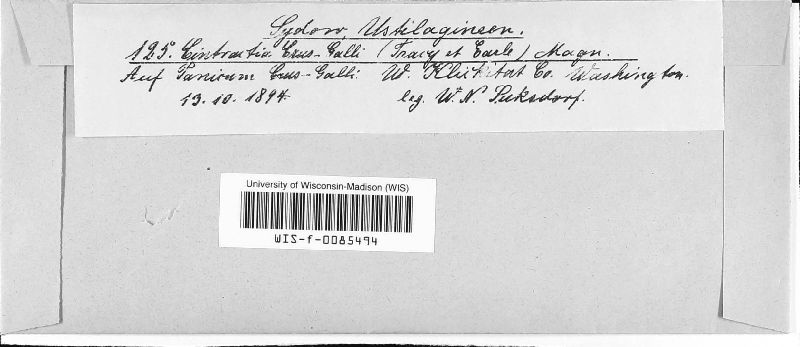 Sydow, Ustilagineen.
125. Cintractia Crus-Galli (Tracy et Earle) Magn.
Auf Panicum Crus-Galli. W. Klickitat Co. Washington.
13.10.1894. leg. W. N. Suksdorf.
University of Wisconsin-Madison (WIS)
WIS-f-0085494